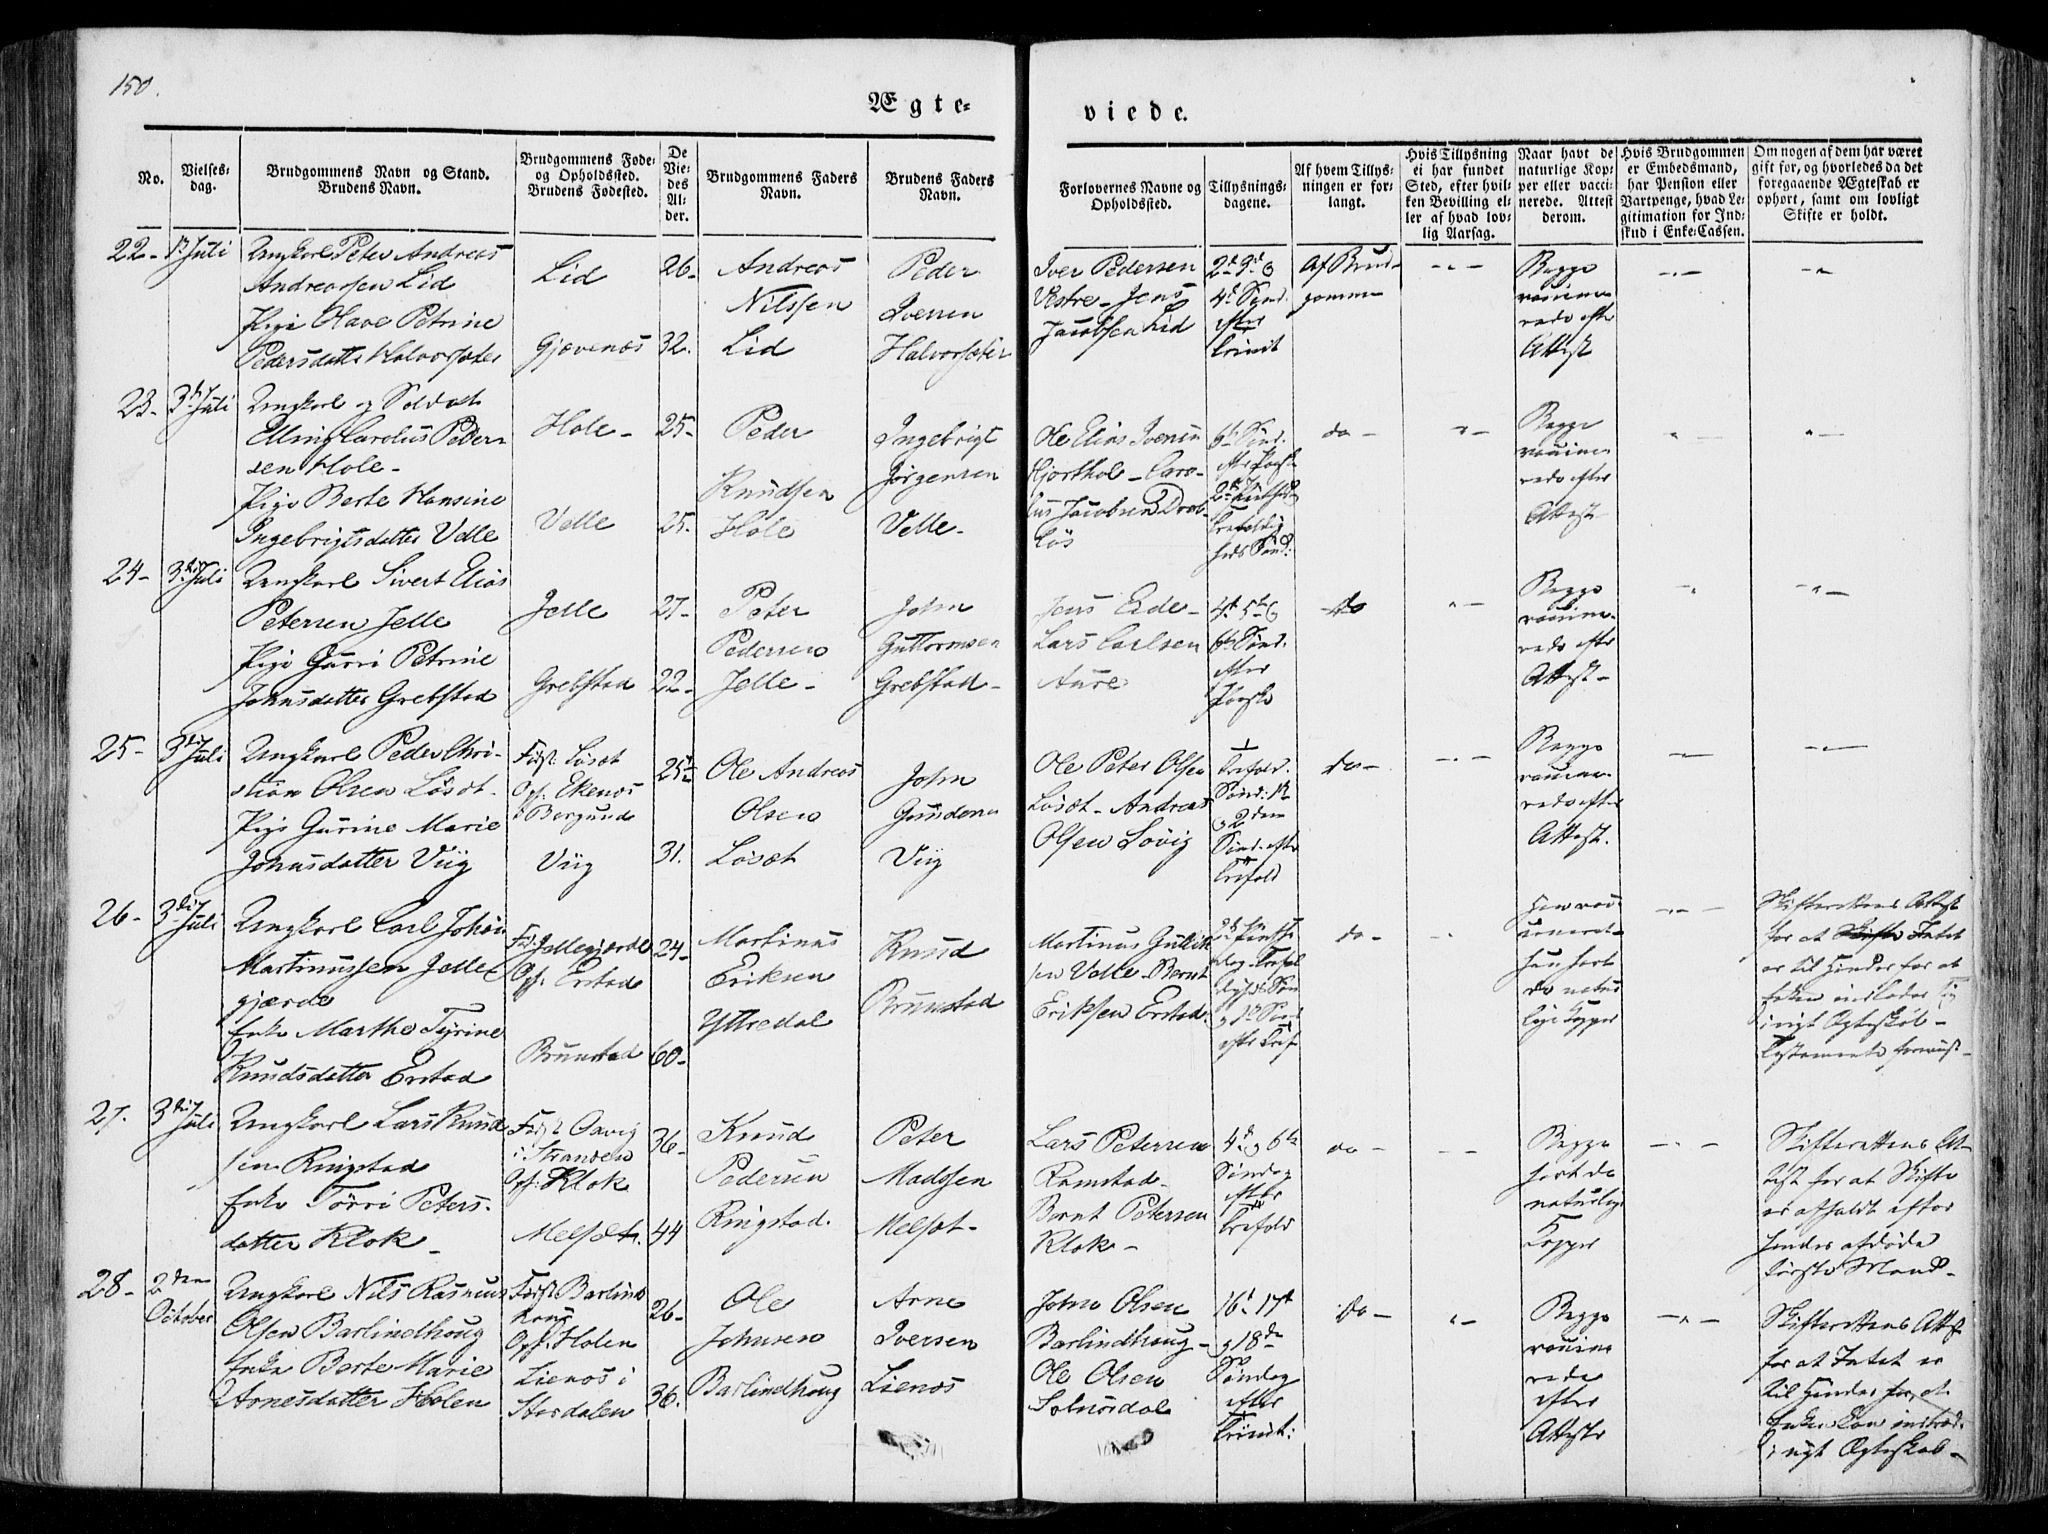 150.
Ægte-
viede.
No.
Vielses-
dag.
Brudgommens Navn og Stand.
Brudens Navn.
Brudgommens Føde-
og Opholdssted.
Brudens Fødested.
De
Vie-
des
Al-
der.
Brudgommens Faders
Navn.
Brudens Faders
Navn.
Forlovernes Navne og
Opholdssted.
Tillysnings-
dagene.
Af hvem Tillys-
ningen er for-
langt.
Hvis Tillysning
ei har fundet
Sted, efter hvil-
ken Bevilling el-
ler af hvad lov-
lig Aarsag.
Naar havt de
naturlige Kop-
per eller vacci-
nerede. Attest
derom.
Hvis Brudgommen
er Embedsmand,
har Pension eller
Vartpenge, hvad Le-
gitimation for Ind-
skud i Enke-Cassen.
Om nogen af dem har været
gift før, og hvorledes da det
foregaaende Ægteskab er
ophørt, samt om lovligt
Skifte er holdt.
22-
Juli
Ungkarl Peter Andreas
Andreassen Lid
Pige Olave Petrine
Pedersdatter Halvorsæter
Lid
Gjævenæs
26-
32.
Andreas
Nilssen
Lid
Peder
Iversen
Halvorsæter
Iver Pedersen
Vestre - Jens
Jacobsen Lid
2den 3die og
4de Sønd.
efter
Trinit
Af Brud-
gommen
Begge
vaccine-
rede efter
Attest
23-
3die Juli
Ungkarl og Soldat
Elling Carolus Peder-
sen Hole-
Pige Berte Hansine
Ingebrigtsdatter Velle
Hole-
Velle
25-
25.
Peder
Knudsen
Hole
Ingebrigt
Jørgensen
Velle-
Ole Elias Iversen
Hjorthol - Caro-
lus Jacobsen Drab-
løs
6te Sønd.
efter Paaske
2den Pintsed.
Trefoldig
heds Sønd:
do -
Begge
vaccine
rede efter
Attest
24-
3die Juli
Ungkarl Sivert Elias
Petersen Jelle
Pige Gurri Petrine
Johnsdatter Grebstad
Jelle
Grebstad
27-
22-
Peter
Pedersen
Jelle-
John
Guttormsen
Grebstad-
Jens Eide-
Lars Carlsen
Aure
4de 5te og
6te Sønd.
efter
Paaske
do
Begge
vaccine-
rede efter
Attest-
25-
3die Juli
Ungkarl Peder Chri-
stian Olsen Løsæt-
Pige Gurine Marie
Johnsdatter Viig
Føst: Løsæt
Opst: Ekenæs
i Borgund
Viig
25½
31.
Ole Andreas
Olsen
Løsæt
John
Gundersen
Viig
Ole Peter Olsen
Løsæt - Andreas
Olsen Løvig
Trefold.
Sønd: 1ste
og 2den
Sønd. efter
Trefold
do -
Begge
vaccine-
rede efter
Attest.
26-
3die Juli
Ungkarl Carl Johan
Martinussen Jelle
gjærde
Enke Marthe Tyrine
Knudsdatter Erstad
Fst: Jellegjærde
Opst: Erstad
Brunstad
24-
60-
Martinus
Eriksen
Yttredal
Knud
Brunstad
Martinus Gullik
sen Velle - Bernt
Eriksen Erstad.
2den Pintse
dag - Trefol
digh. Søn
og 1ste Sønd
efter Tref
do -
Hun vac-
cineret -
han havt
de natur
lige Kopper
Skifterettens Attest
for at Intet
er til Hinder for at
Enken indlader sig
i nyt Ægteskab -
Testamente
27.
3die Juli
Ungkarl Lars Knud
sen Ringstad
Enke Tørri Peters-
datter Klok -
Føst Oavig
i Stranden
Opst: Klok
Melsæt.
36-
44
Knud
Pedersen
Ringstad.
Peter
Madssen
Melsæt-
Lars Petersen
Ramstad-
Bernt Petersen
Klok-
4de og 6te
Søndag
efter
Trefold
do -
Begge
havt de
naturlige
Kopper
Skifterettens At-
test for at Skifte
er afholdt efter
hendes afdøde
første Mand-
28-
2den
October
Ungkarl Nils Rasmus
Olsen Barlindhoug
Enke Berte Marie
Arnesdatter Holen
Føst Barlind
houg
Opst: Holen
Lienæs i
Stordalen
26-
36.
Ole
Johnsen
Barlindhoug
Arne
Iversen
Lienæs
John Olsen
Barlindhoug-
Ole Olsen
Solnørdal
16de 17de
og 18de
Søndag
efter
Trinit:
Do -
Begge
vaccine
rede
efter
Attester
Skifterettens Attest
for at Intet er
til Hinder for, at
Enken kan indtræde
i nyt Ægteskab-